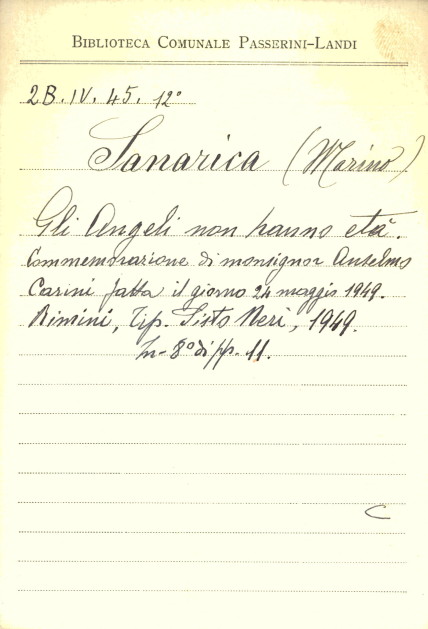 BIBLIOTECA COMUNALE PASSERINI-LANDI
2B.IV.45. 12°
Sanarica (Marino)
Gli Angeli non hanno età.
Commemorazione di monsignor Anselmo
Carini fatta il giorno 24 maggio 1949.
Rimini, Tip. Sisto Neri, 1949.
In-8° di pp. 11.
C